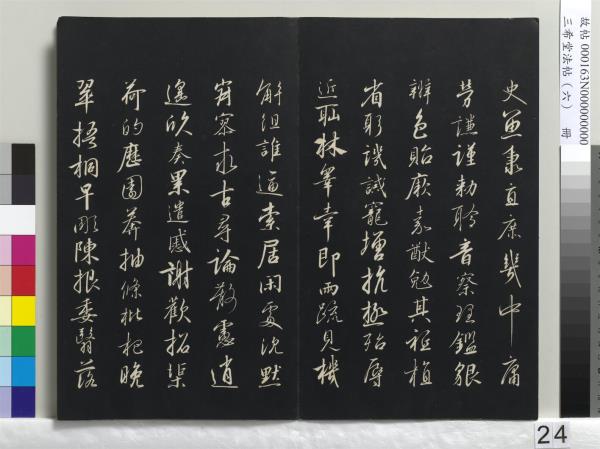 故帖 000163N000000000
三希堂法帖（六） 冊
史魚秉直庶幾中庸
勞謙謹勑聆音察理鑑貌
辨色貽厥嘉猷勉其祗植
省躬譏誡寵增抗極殆辱
近恥林皋幸即兩疏見機
解組誰逼索居閑處沈默
寂寥求古尋論散慮逍
遙欣奏累遣慼謝歡招渠
荷的歷園莽抽條枇杷晚
翠梧桐早凋陳根委翳落
24